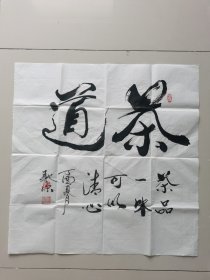 茶道
茶品
一味
可以
清心